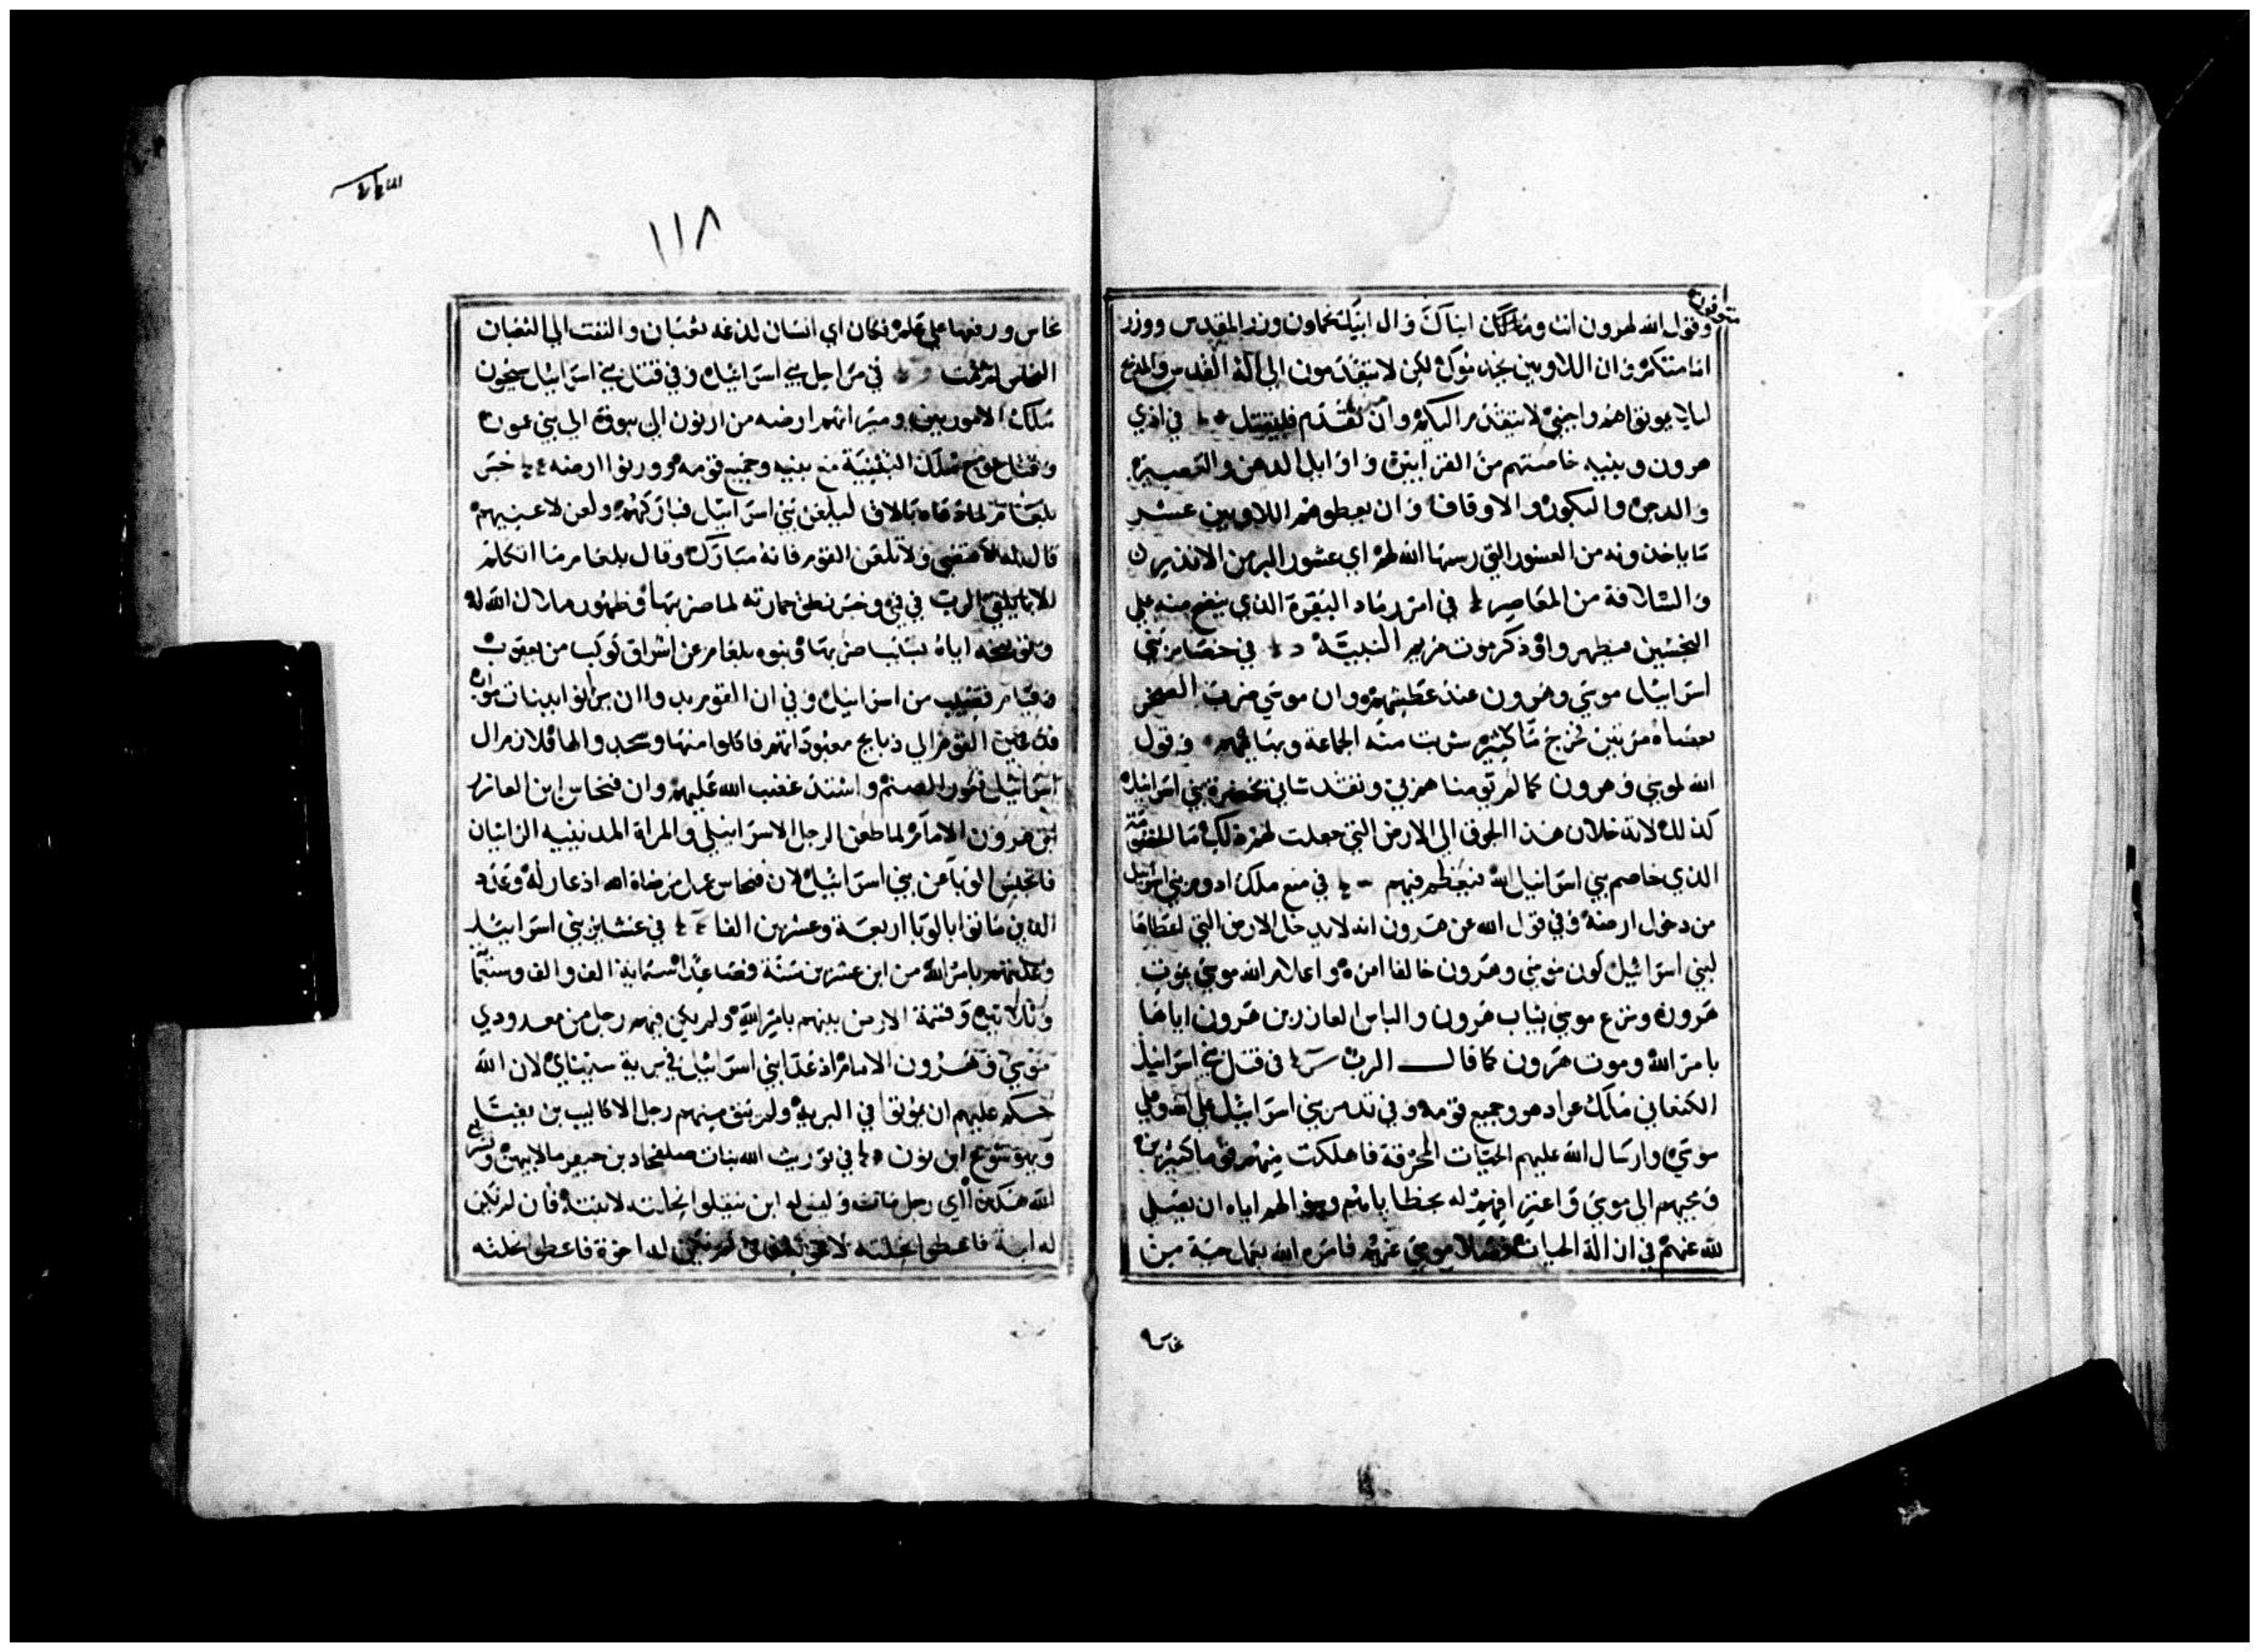 وقول الله لهرون انت وبناك ابناك وال ابيك تحملون وزر المقدس ووزر
امامتكم وان اللاويين يخدموك لكن لا يتقدمون الي الة القدس والمذبح
ليلا يموتوا هم واجنبي لا يتقدم اليكم وان تقدم فليقتل في اذي
هرون وبنيه خاصتهم من القرابين واوايل الدهن والعصير
والدجن والبكور والاوقاف وان يعطوهم اللاويين عشر
ما ياخذونه من العشور التي رسمها الله لهم اي عشور البر من الانذيرن
والسلافة من المعاصر في امر رماد البقرة الذي ينضح منه علي
النجسين فيطهروا وذكر موت مريم النبية في خصام بني
اسراييل موسي وهرون عند عطشهم وان موسي ضرب الصخر
بعصاه مرتين فخرج ما كثير شرت منه الجماعة وبهايمهم وقول
الله لموسي وهرون كما لم تومنا همزني وتقدساني بحضرة بني اسراييل
كذلك لا تدخلان هذا الجوق الي الارض التي جعلت لهم ذلك ما الخصومة
الذي خاصم بني اسراييل الله فيعظم فيهم في منع ملك ادوم بني اسراييل
من دخول ارضه وفي قول الله عن هرون انه لا يدخل الارض التي اعطاها
لبني اسراييل كون موسي وهرون خالفا امره واعلام الله موسي بموت
هرون ونزع موسي ثياب هرون والباس العازر بن هرون اياها
بامر الله وموت هرون كما قال الرب في قتل بني اسراييل
الكنعاني ملك عراد هو وجميع قومه وفي تدمر بني اسراييل علي الله وعلي
موسي وارسال الله عليهم الحيات المحرقة فاهلكت منهم قوما كثيرين
ومجيهم الي موسي واعترافهم له بخطاياهم وسوالهم اياه ان يصلي
لله عنهم في ان الة الحيات فصلا موسي عنهم فامره الله بعمل حية من
نحاس
١١٨
نحاس ورفعها علي علم فكان اي انسان لدغه ثعبان والتفت الي الثعبان
النحاس لم يمت في مراحل بني اسراييل وفي قتل بني اسراييل سيحون
ملك الاموريين وميراثهم ارضه من ارنون الي يبوق الي بني عمون
وقتل عوج ملك البثينية مع بنيه وجميع قومه وورثوا ارضه خبر
بلعام لما دعاه بالاق ليلعن بني اسراييل فباركهم ولعن لاعنيهم
قال له لا تمضي ولا تلعن القوم فانه مبارك وقال بلعام ما اتكلم
الا ما يلقي الرب في في وخبر نطق حمارته لما ضربها وظهور ملاك الله له
وتوبيخه اياه بسبب ضربها ونبوه بلعام عن اشراق كوكب من يعقوب
وقيام قضيب من اسراييل وفي ان القوم بدوا ان يزنوا ببنات مواب
فدعين القوم الي ذبايح معبوداتهم فاكلوا منها وسجدوا لها فلازم ال
اسراييل فغور الصنم واشتد غضب الله عليهم وان فنحاس ابن العازر
ابن هرون الامام لما طعن الرجل الاسراييلي والمراة المدينيه الزانيان
فانحبس الوبا عن بني اسراييل لان فنحاس عمل مرضاة الله اذ غار له وعدد
الذين ماتوا بالوبا اربعة وعشرين الفا في عشاير بني اسراييل
وعدتهم بامر الله من ابن عشرين سنة فصاعدا ستماية الف والف وستما
وثلاثين وقسمة الارض بينهم بامر الله ولم يكن فيهم رجل من معدودي
موسي وهرون الامام اذ عدا بني اسراييل في برية سيناي لان الله
حكم عليهم ان يموتوا في البرية ولم يبق منهم رجل الا كاليب بن يفنيا
ويهوشوع ابن نون في توريث الله بنات صلفحاد بن حيفر مال ابيهن وشرع
الله هكذا اي رجل مات وليس له ابن ينقلوا نحلته لابنته فان لم تكن
له ابنة فاعطوا نحلته لاخوته فان لم تكن له اخوة فاعطوا نحلته